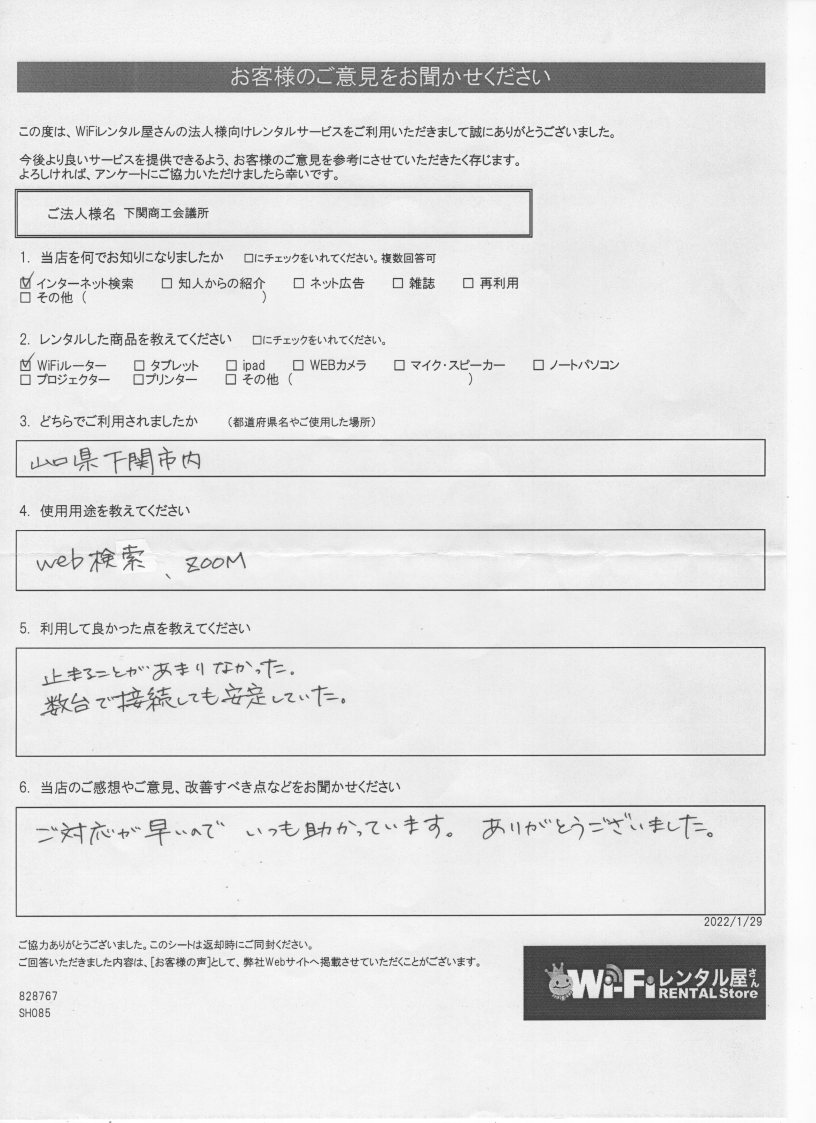 お客様のご意見をお聞かせください
この度は、WiFiレンタル屋さんの法人様向けレンタルサービスをご利用いただきまして誠にありがとうございました。
今後より良いサービスを提供できるよう、お客様のご意見を参考にさせていただきたく存じます。
よろしければ、アンケートにご協力いただけましたら幸いです。
ご法人様名 下関商工会議所
1. 当店を何でお知りになりましたか □にチェックをいれてください。複数回答可
☑ インターネット検索 □ 知人からの紹介 □ ネット広告 □ 雑誌 □ 再利用
□ その他 ( )
2. レンタルした商品を教えてください □にチェックをいれてください。
☑ WiFiルーター □ タブレット □ ipad □ WEBカメラ □ マイク・スピーカー □ ノートパソコン
□ プロジェクター □プリンター □ その他 ( )
3. どちらでご利用されましたか (都道府県名やご使用した場所)
山口県下関市内
4. 使用用途を教えてください
web検索、ZOOM
5. 利用して良かった点を教えてください
止まることがあまりなかった。
数台で接続しても安定していた。
6. 当店のご感想やご意見、改善すべき点などをお聞かせください
ご対応が早いので いつも助かっています。 ありがとうございました。
2022/1/29
ご協力ありがとうございました。このシートは返却時にご同封ください。
ご回答いただきました内容は、[お客様の声]として、弊社Webサイトへ掲載させていただくことがございます。
Wi-Fiレンタル屋さん
RENTAL Store
828767
SH085